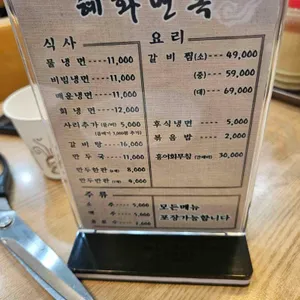 혜화면옥
식사
물냉면 11,000
비빔냉면 11,000
매운냉면 11,000
회냉면 12,000
사리추가 5,000
갈비탕 16,000
만두국 11,000
만두한판 8,000
만두반판 4,000
요리
갈비찜(소) 49,000
(중) 59,000
(대) 69,000
후식냉면 5,000
볶음밥 2,000
홍어회무침 30,000
주류
소주 5,000
맥주 5,000
모든메뉴
포장가능합니다